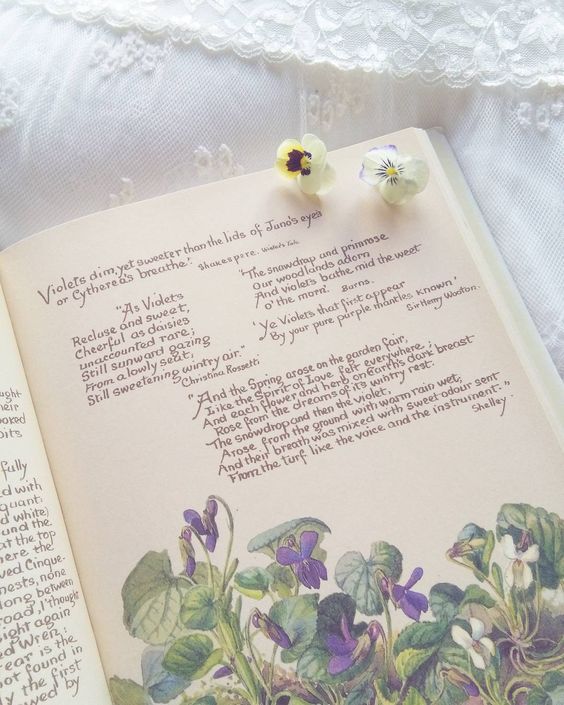 ought
their
ooked
fully
ed with
quant:
d white)
ound the
at the top
here the
ved Cinque-
nests, none
long between
road, I thought
ight again
ed Wren:
ear is the
ot found in
ly the first
wed by
Violets dim, yet sweeter than the lids of Juno's eyes
or Cytherea's breathe.' Shakespere. Winter's Tale
"As Violets
Recluse and sweet,
Cheerful as daisies
unaccounted rare;
Still sunward gazing
From a lowly seat;
Still sweetening wintry air."
Christina Rossetti
'The snowdrap and primrose
Our woodlands adorn
And violets bathe mid the weet
o' the morn'. Burns.
'Ye Violets that first appear
By your pure purple mantles known.'
Sir Henry Wooton.
"And the Spring arose on the garden fair,
Like the Spirit of Love felt everywhere;
And each flower and herb on Earth's dark breast
Rose from the dreams of its wintry rest.
The snowdrop and then the violet,
Arose from the ground with warm rain wet,
And their breath was mixed with sweet odour sent
From the turf like the voice and the instrument."
Shelley